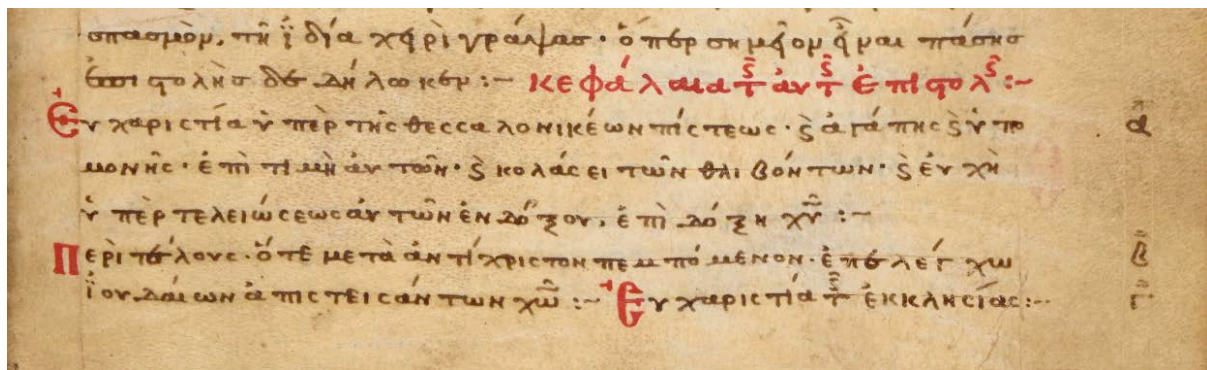 σπασμὸν, τῆ ϊδία χειρὶ γράψας · ὅπερ σημεῖον εἶναι πάσης
ἐπιστολῆς δεδήλωκεν :~ κεφάλαια τ̑ αὐτ̑ ἐπιστολ :~
Εὐχαριστία ὑπὲρ τῆς θεσσαλονικέων πίστεως · ϗ ἀγάπης ϗ ὑπο α
μονῆς · ἐπὶ τιμῆ αὐτῶν · ϗ κολάσει τῶν θλιβόντων · ϗ εὐχὴ
ὑπὲρ τελειώσεως αὐτῶν ἐνδόξου, ἐπὶ δόξη χυ :~
Περὶ τέλους · ὅτε μετὰ ἀντίχριστον πεμπόμενον · ἐπ ἐλέγχω β
ϊουδαίων ἀπιστεισάντων χω :~ Εὐχαριστία τ̑ ἐκκλησίας :~ γ